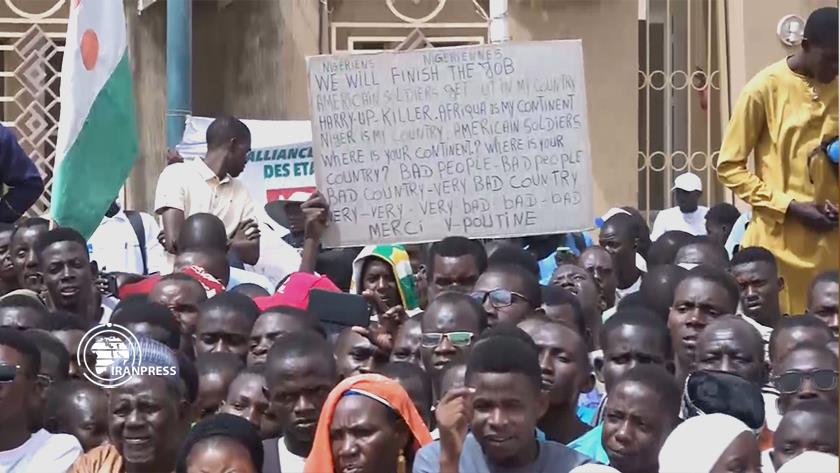 NIGERIENS NIGERIENNES
WE WILL FINISH THE JOB
AMERICAN SOLDIERS GET UT IN MY COUNTRY
HARRY-UP-KILLER. AFRIQUA IS MY CONTINENT
NIGER IS MY COUNTRY. AMERICAN SOLDIERS
WHERE IS YOUR CONTINENT? WHERE IS YOUR
COUNTRY? BAD PEOPLE-BAD PEOPLE
BAD COUNTRY-VERY BAD COUNTRY
VERY-VERY-VERY BAD-BAD-BAD
MERCI V-POUTINE
ALLIANCE
DES ET
IRANPRESS